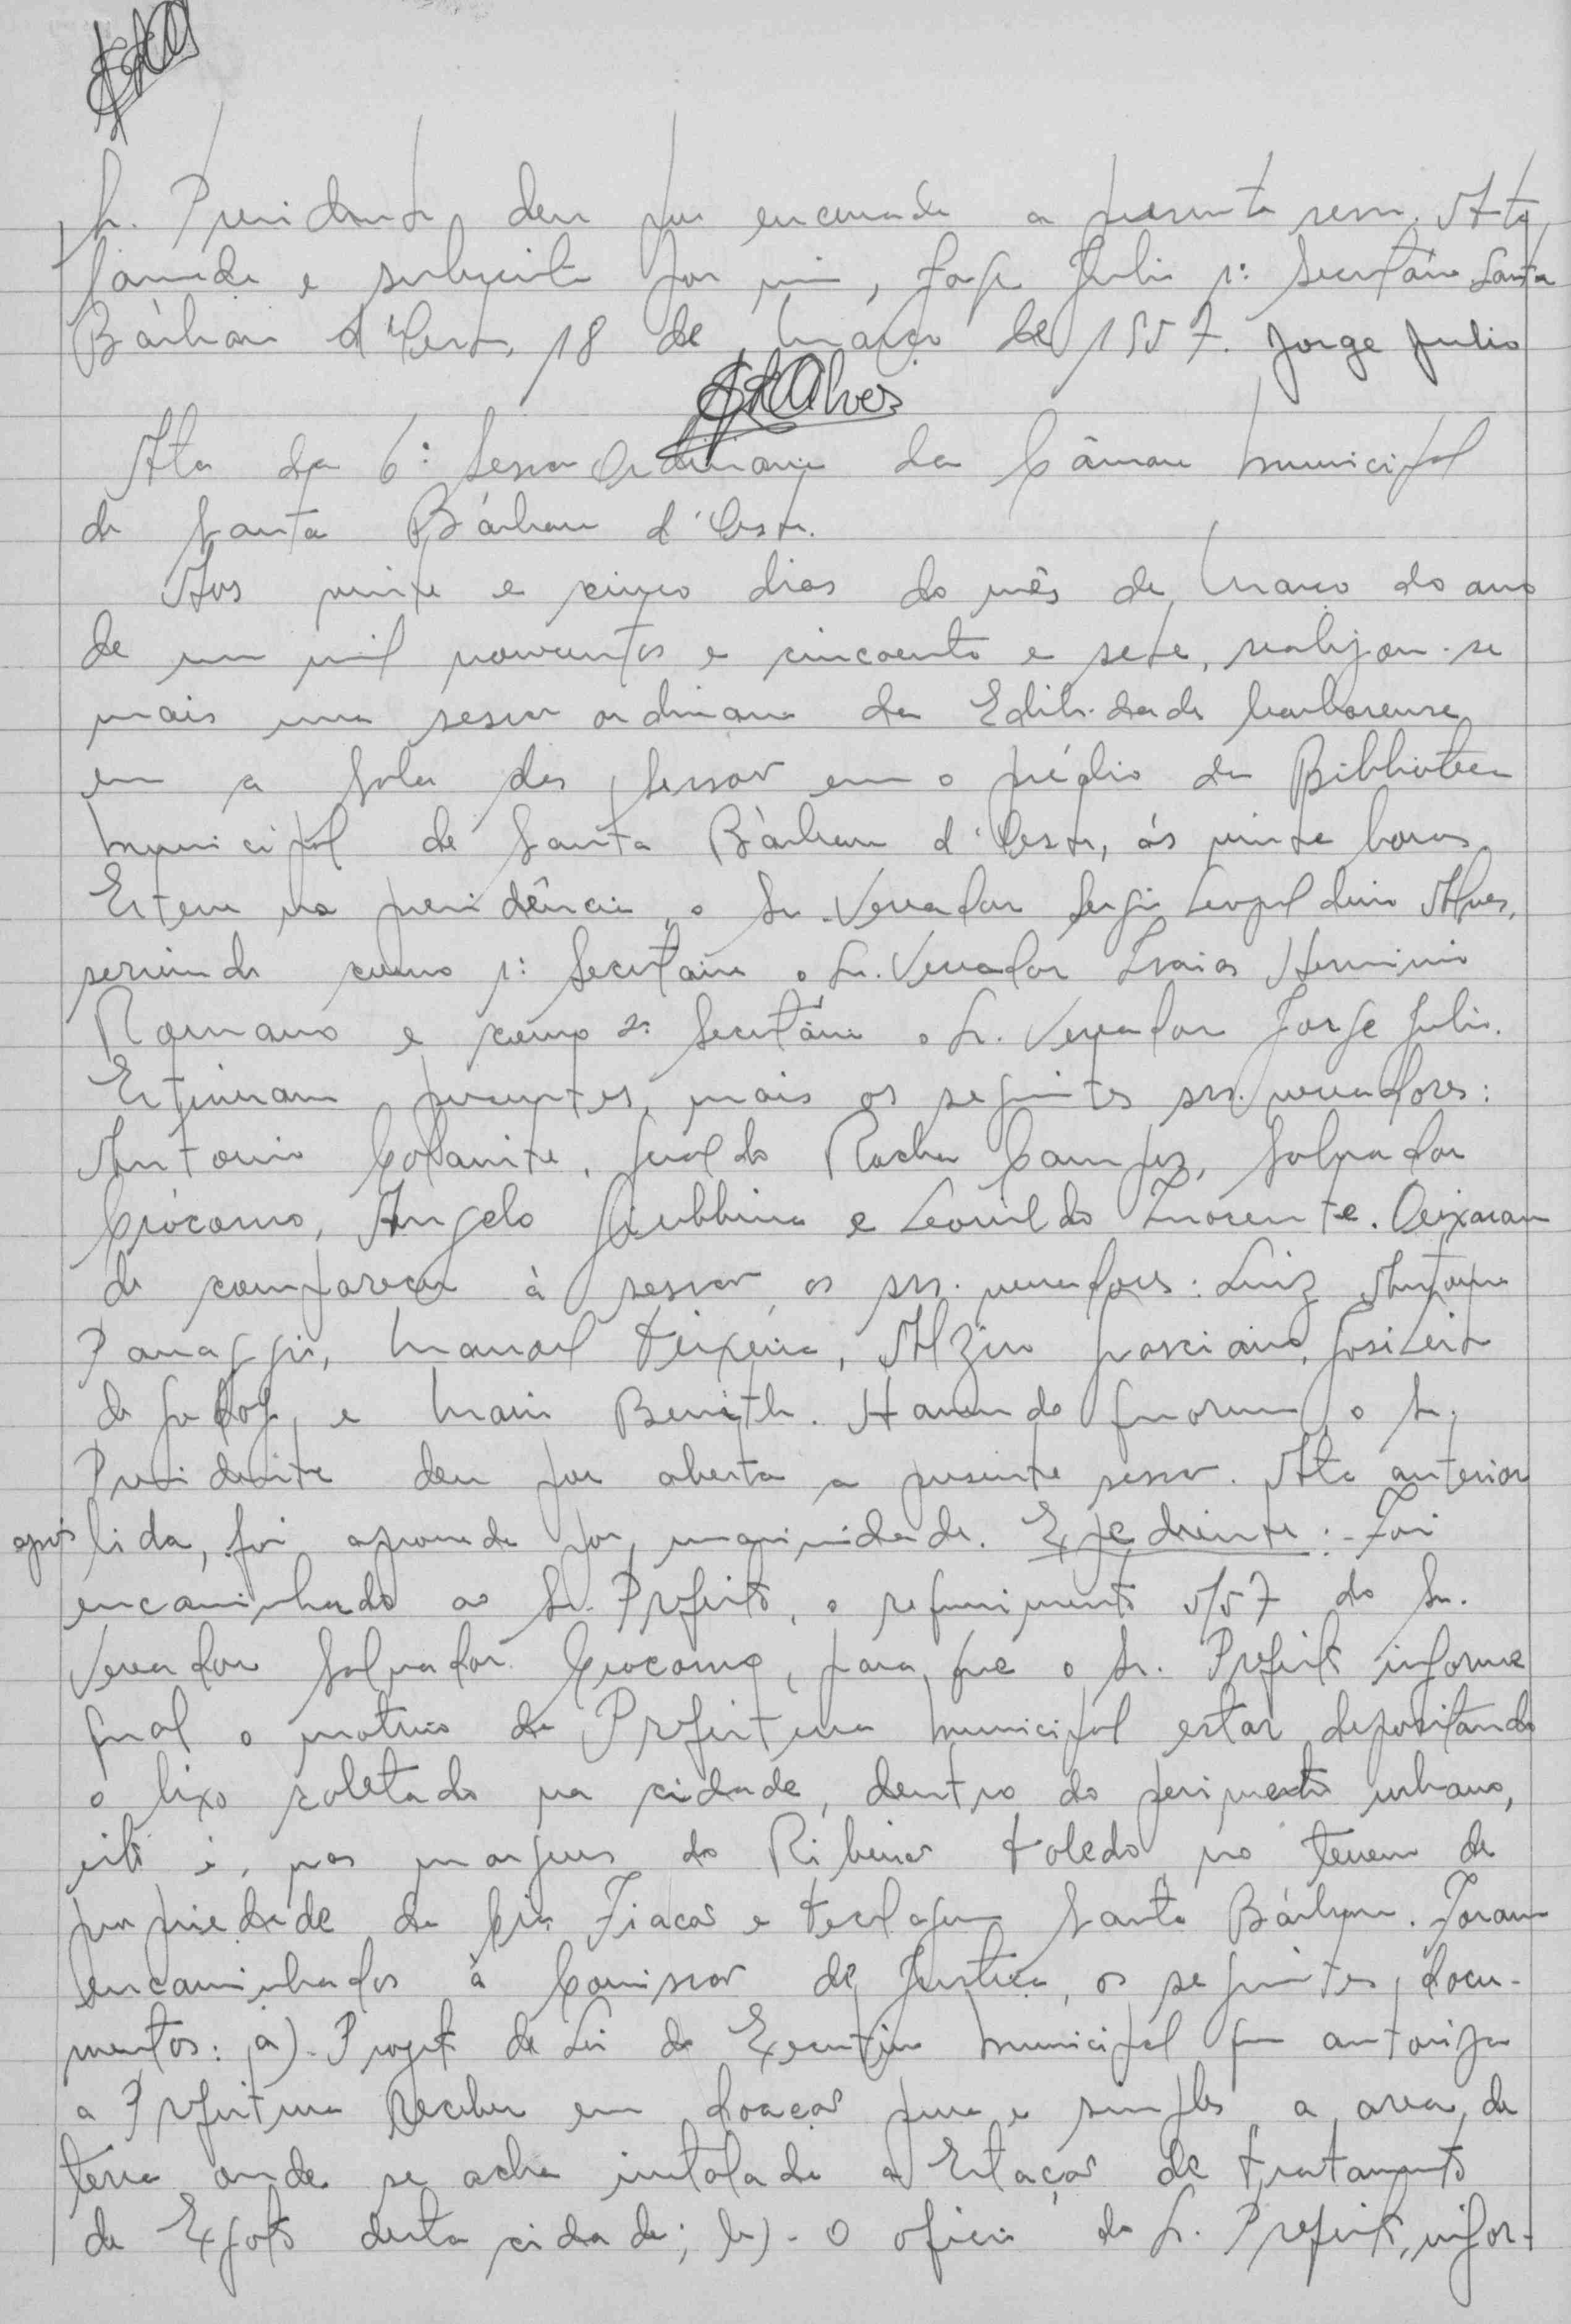 Sr. Presidente, deu por encerrada a presente sessão. Ata
lavrada e subscrita por mim, Jorge Julio 1º Secretário Santa
Bárbara d'Oeste, 18 de março de 1957. Jorge Julio
SLAlves
Ata da 6ª Sessão Ordinaria da Câmara Municipal
de Santa Bárbara d'Oeste.
Aos vinte e cinco dias do mês de Março do ano
de um mil novecentos e cincoenta e sete, realizou-se
mais uma sessão ordinaria da Edilidade barbarense
em a Sala das Sessões em o prédio da Bibliotéca
Municipal de Santa Bàrbara d'Oeste, ás vinte horas
Esteve na presidência, o Sr. Vereador Sergio Leopoldino Alves,
servindo como 1º Secretario o Sr. Vereador Izaias Herminio
Romano e como 2º Secretário o Sr. Vereador Jorge Julio.
Estiveram presentes, mais os seguintes srs. vereadores:
Antonio Colamite, Geraldo Rocha Campos, Salvador
Crócomo, Angelo Giubbina e Leonildo Inocente. Deixaram
de comparecer à sessão, os srs. vereadores: Luiz Antonio
Panaggio, Manoel Teixeira, Alziro Graciano, José Leite
de Godoy, e Mario Benith. Havendo quorum, o Sr.
Presidente deu por aberta a presente sessão. Ata anterior
após lida, foi aprovada por unanimidade. Expediente: - Foi
encaminhado ao Sr. Prefeito, o requerimento 5/57 do Sr.
Vereador Salvador Crocomo, para que o Sr. Prefeito informe
qual o motivo da Prefeitura Municipal estar depositando
o lixo coletado na cidade, dentro do perimetro urbano,
isto é, nas margens do Ribeirão Toledo no terreno de
propriedade da Cia Fiação e Tecelagem Santa Bárbara. Foram
encaminhados à Comissão de Justiça, os seguintes, docu-
mentos: a)- Projeto de Lei do Executivo Municipal que autoriza
a Prefeitura Receber em doação pura e simples a area de
terra onde se acha instalada a Estação de tratamento
de Esgoto desta cidade; b)- O oficio do Sr. Prefeito, infor-